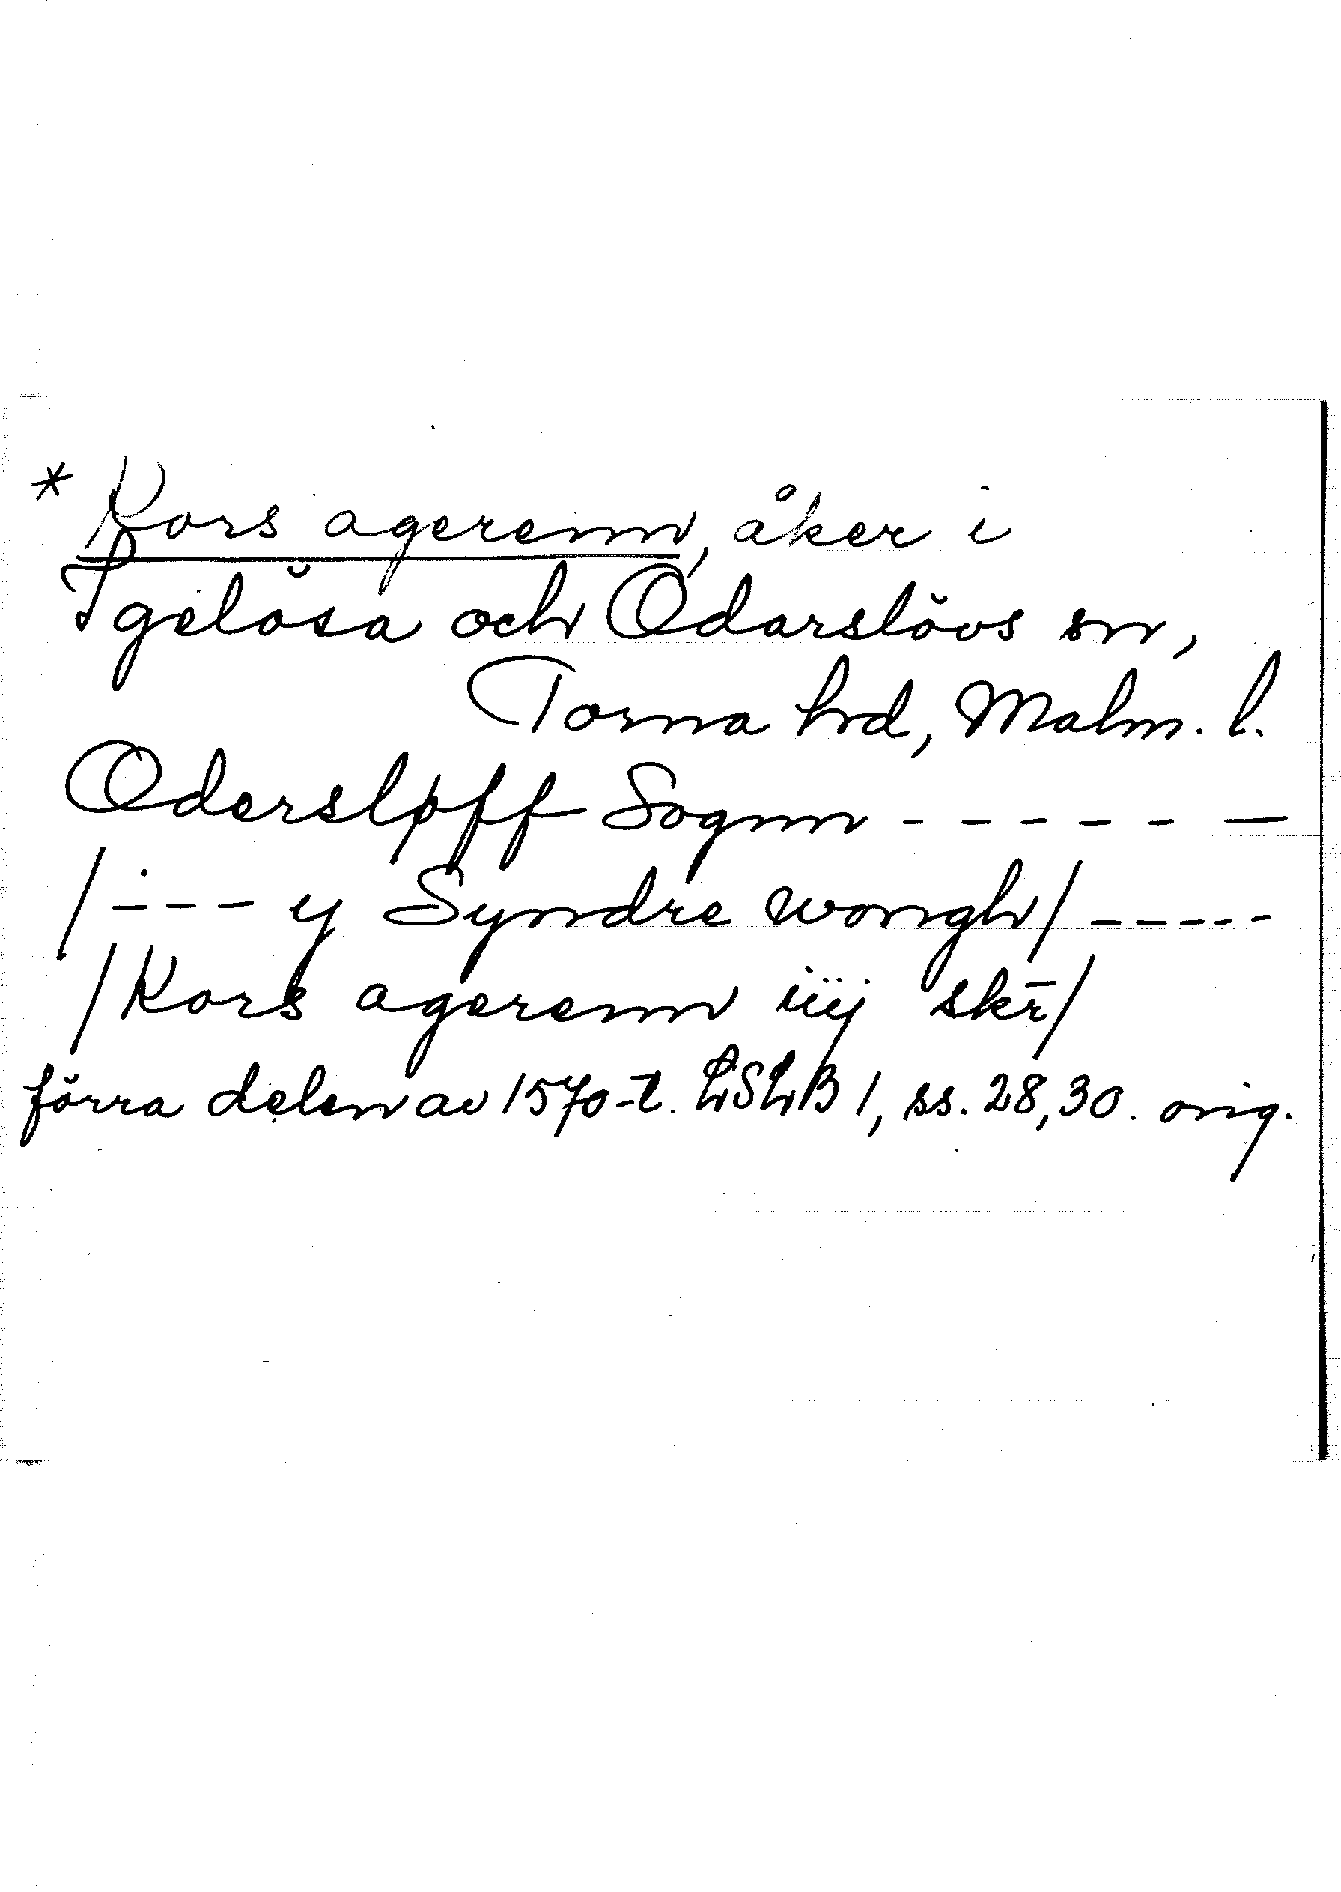 * Kors agerenn, åker i
Igelösa och Odarslövs sn,
Torna hd, Malm. l.
Odersløff Sognn - - - - - -
/ - - - y Syndre wongh / - - - - -
/ Kors agerenn iiij skr̄ /
förra delen av 1570-t. LSLB 1, ss. 28,30. orig.